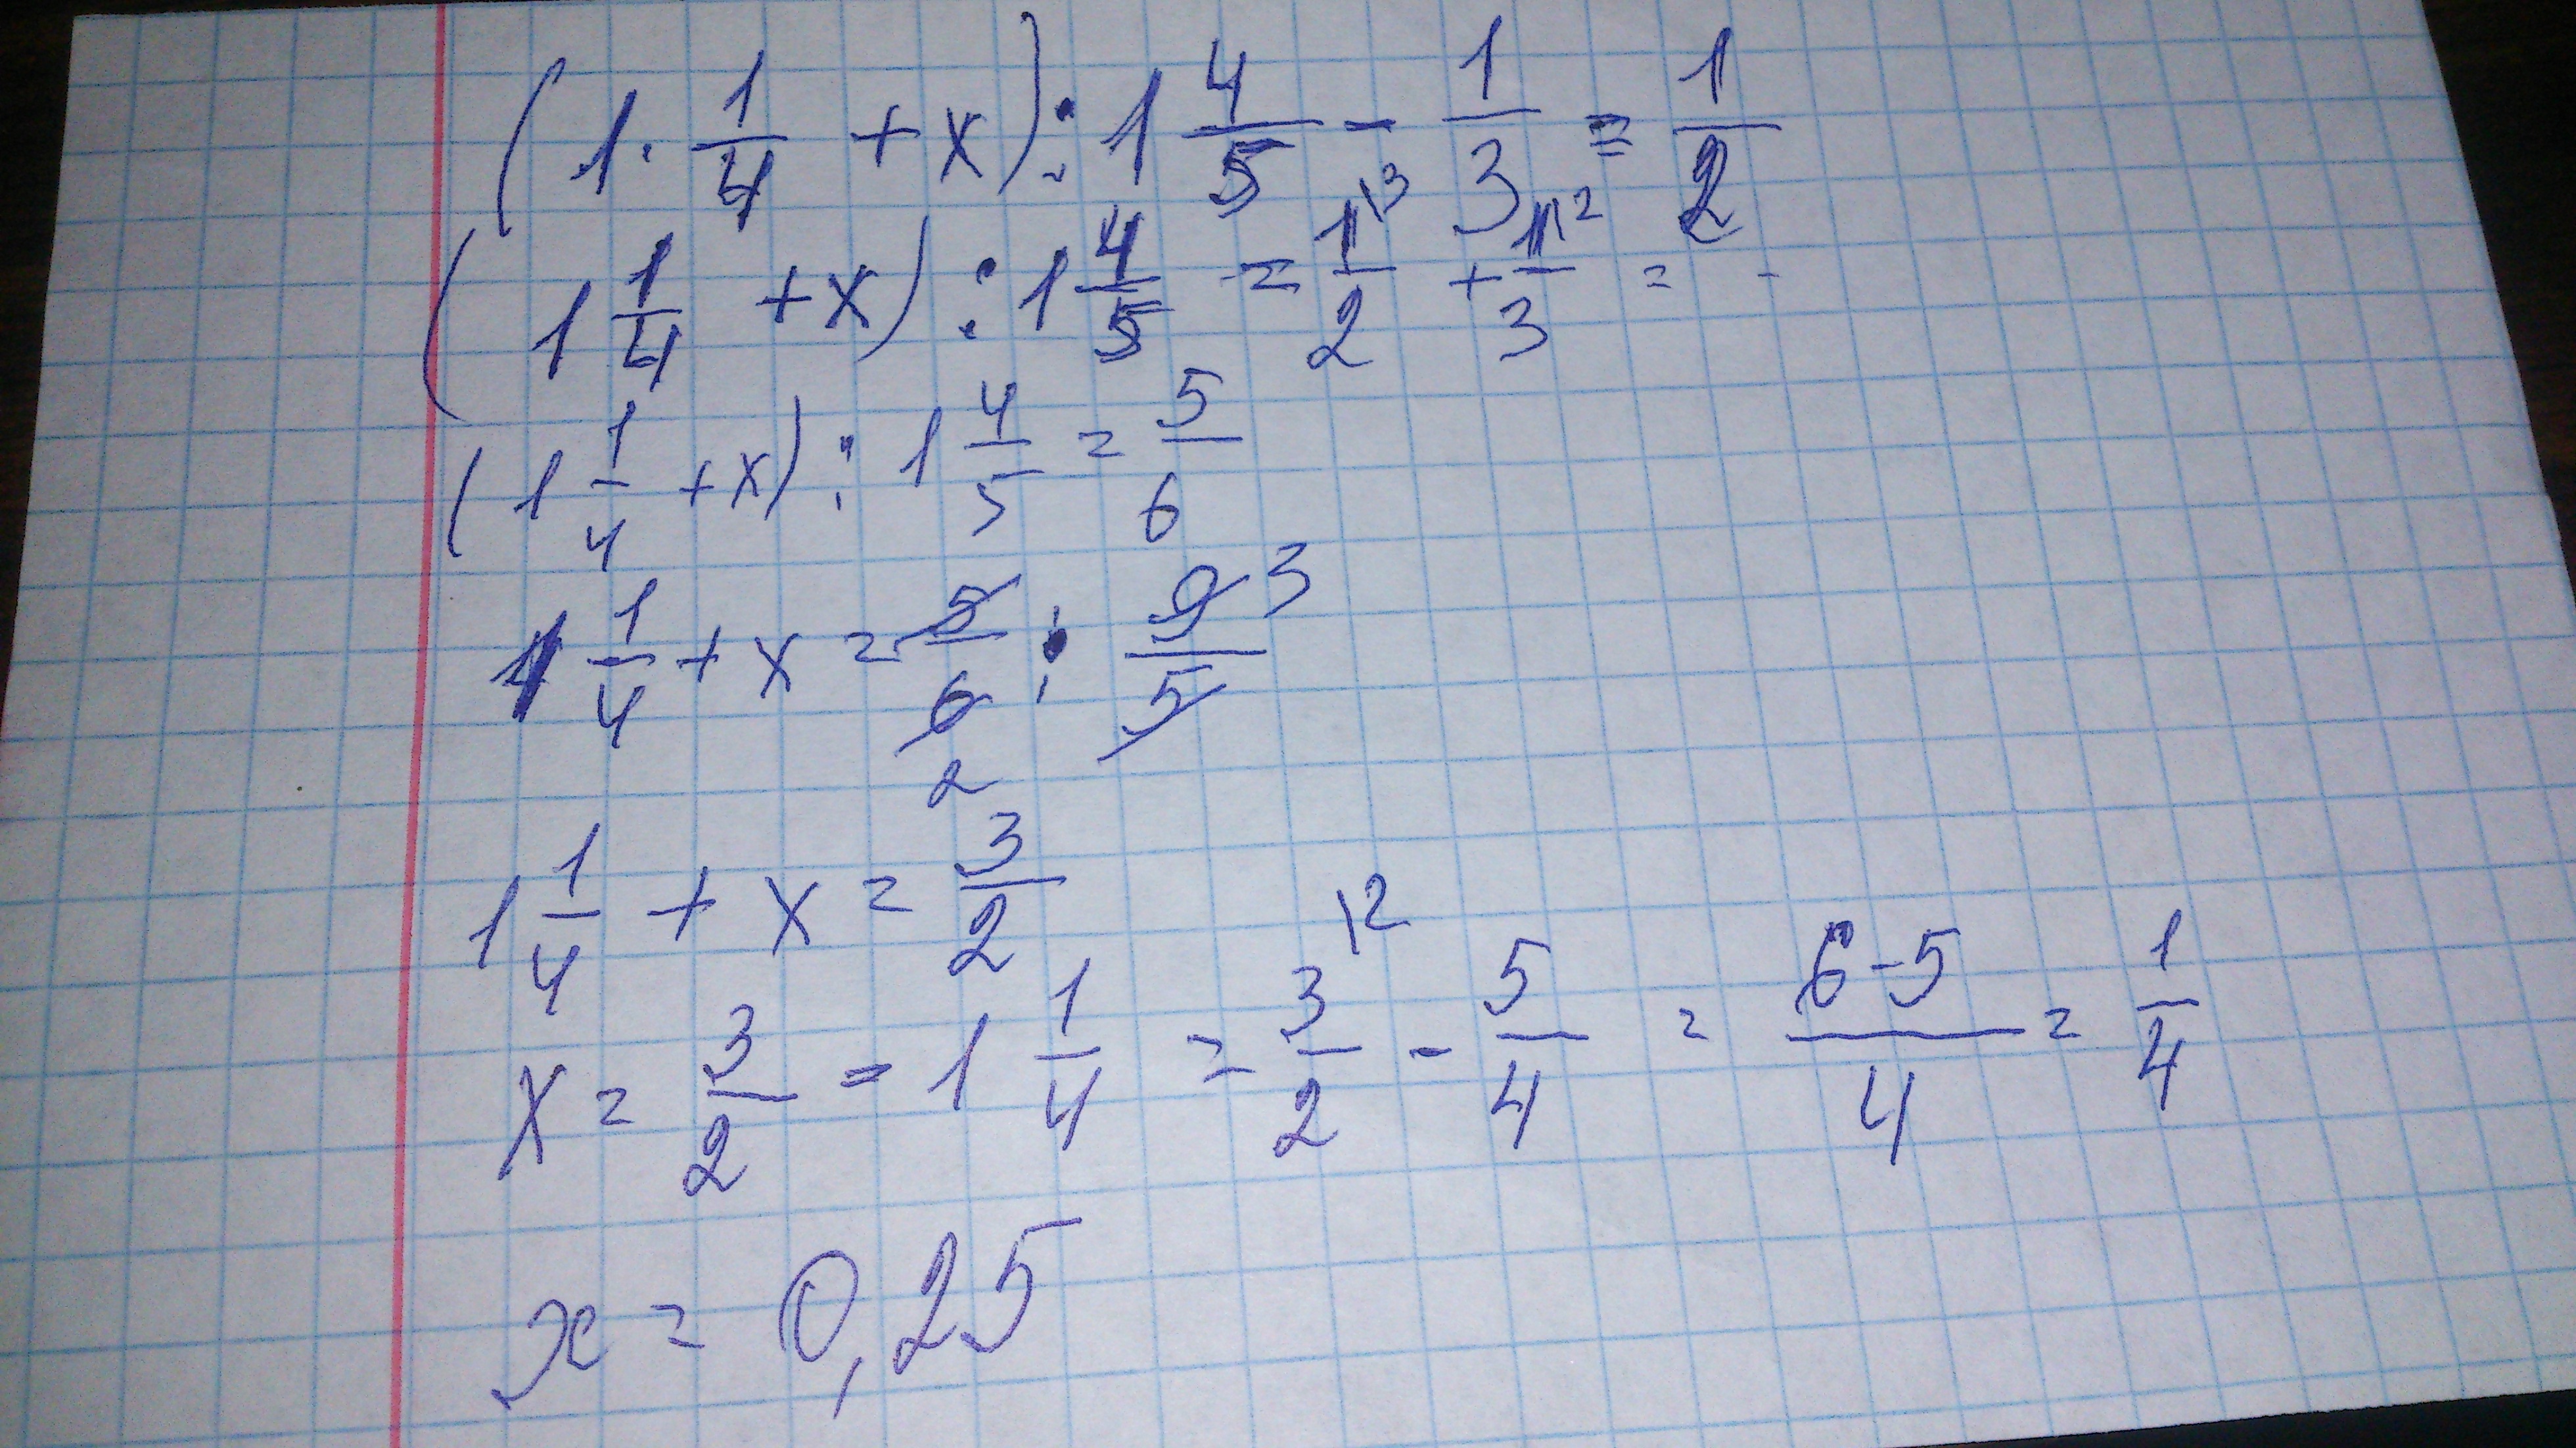 (1 · 1/4 + x) : 1 4/5 - 1/3 = 1/2
(1 1/4 + x) : 1 4/5 = 1\3/2 + 1\2/3 = -
(1 1/4 + x) : 1 4/5 = 5/6
1 1/4 + x = 5/6 2 : 9 3/5
1 1/4 + x = 3/2
x = 3/2 - 1 1/4 = 3\2/2 - 5/4 = 6-5/4 = 1/4
x = 0,25